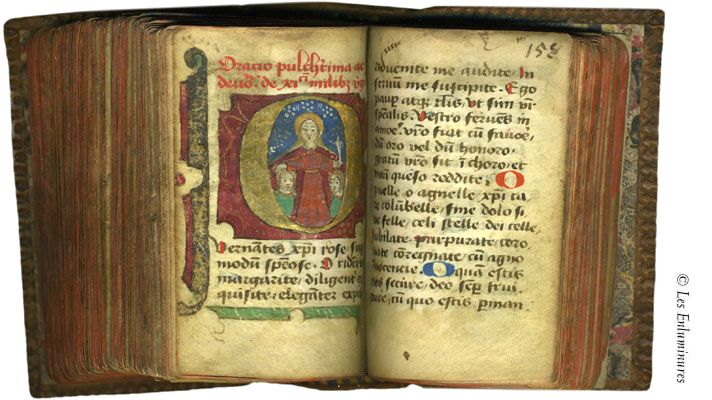 Oracio pulcherima ac
deuo. de xi. milibz vg
Uernantes xpi rose sup
modum spēose. O riden
margarite, diligenter
quisite, eleganter expo
158
aduenite me audite, In
serium me suscipite. Ego
paup atqz vilis, vt sim vr
spēalis. Vestro feruens in
amore, vro fiat cū fauore,
dū oro vel dū honoro,
gratum vro sit ī choro, et
vam queso reddite, O
puelle o agnelle, xpi ca
re columbelle, sine dolo si
ne felle, celi stelle dei celle,
iubilate purpurate, coro
nate cōregnate, cū agno
inocencie, O quam estis
vos secure, deo semp frui
ture, cū quo estis pman
© Les Enluminures